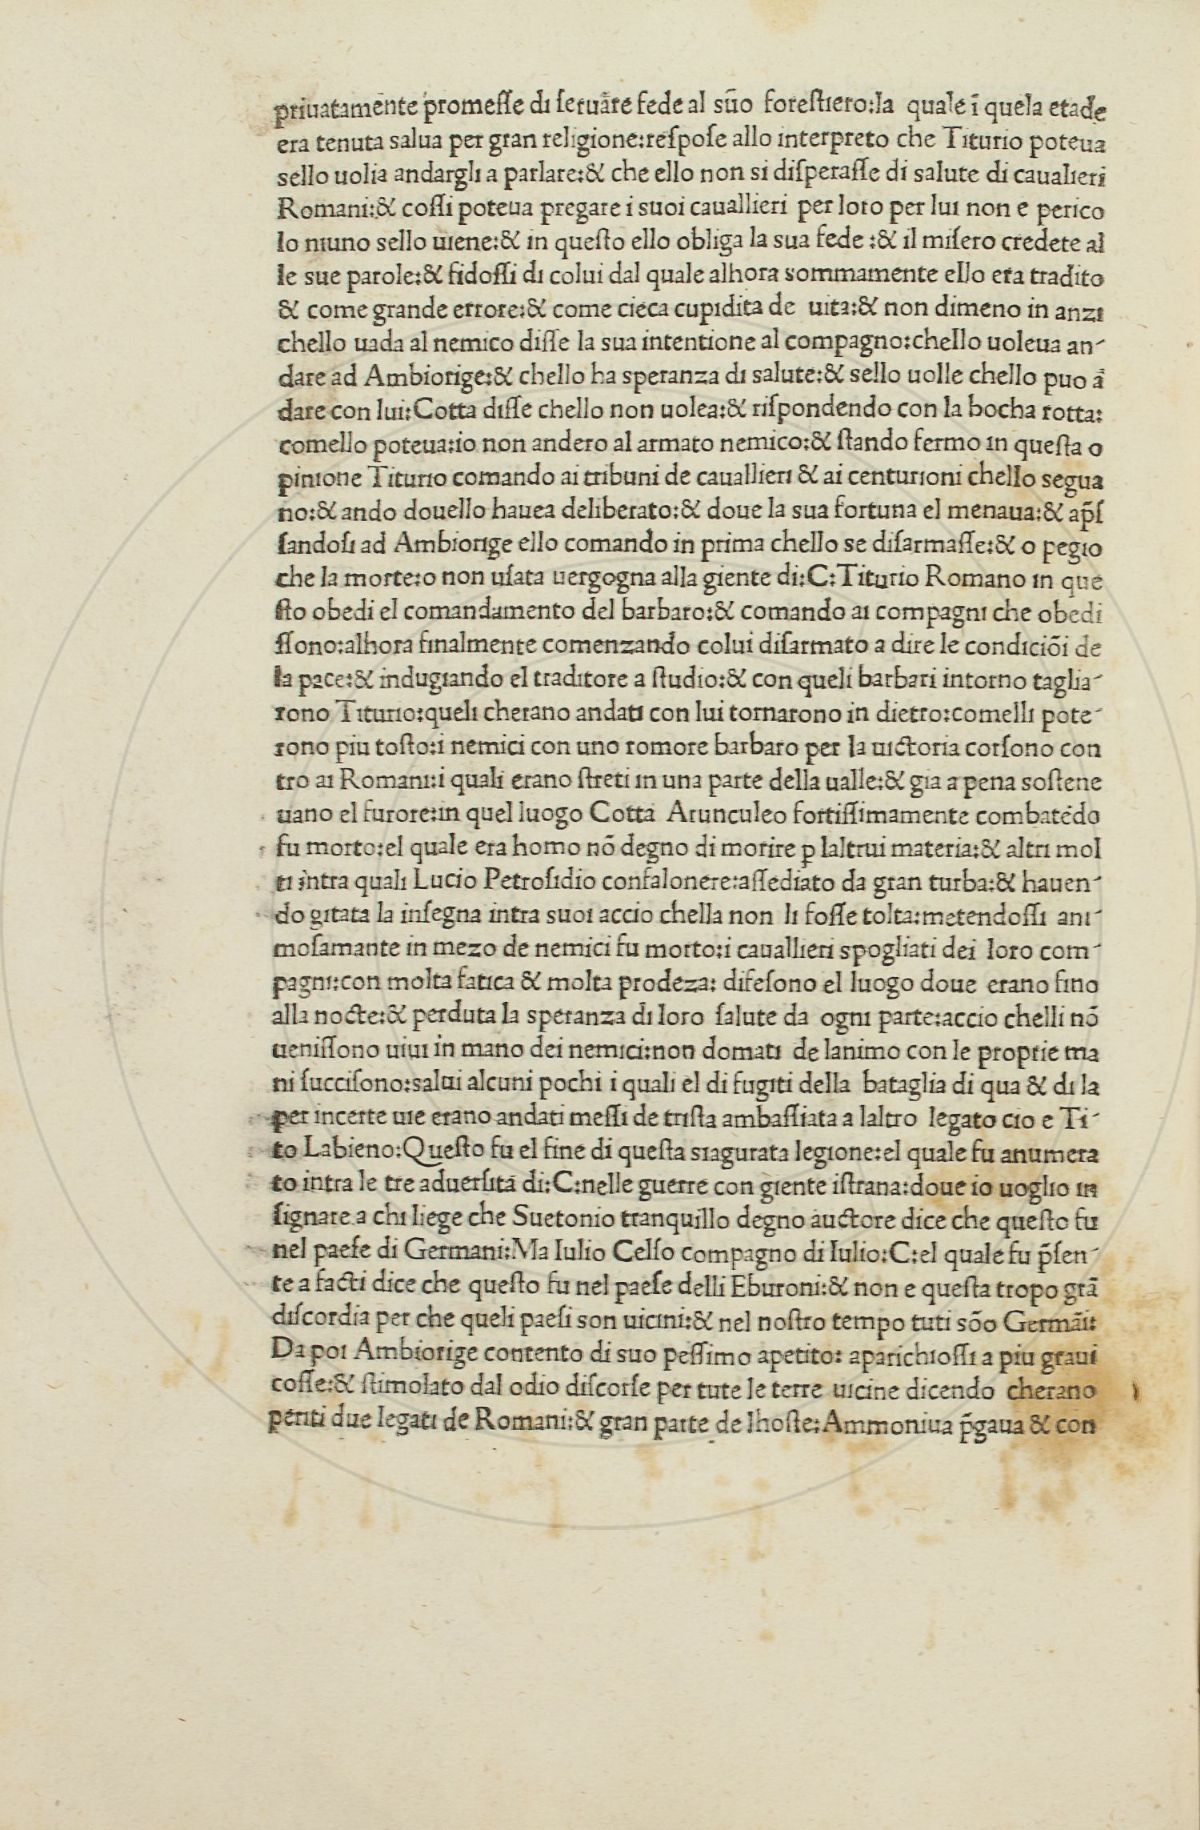 priuatamente promeſſe di ſeruare fede al suo foreſtiero:la quale ī quela etade
era tenuta salua per gran religione:reſpoſe allo interpreto che Titurio poteua
sello uolia andargli a parlare:& che ello non si diſperaſſe di salute di caualieri
Romani:& coſſi poteua pregare i suoi cauallieri per loro per lui non e perico
lo niuno sello uiene:& in queſto ello obliga la sua fede :& il miſero credete al
le sue parole:& fidoſſi di colui dal quale alhora sommamente ello era tradito
& come grande errore:& come cieca cupidita de uita:& non dimeno in anzi
chello uada al nemico diſſe la sua intentione al compagno:chello uoleua an-
dare ad Ambiorige:& chello ha speranza di salute:& sello uolle chello puo ā
dare con lui:Cotta diſſe chello non uolea:& riſpondendo con la bocha rotta:
comello poteua:io non andero al armato nemico:& ſtando fermo in queſta o
pinione Titurio comando ai tribuni de cauallieri & ai centurioni chello segua
no:& ando douello hauea deliberato:& doue la sua fortuna el menaua:& ap̄ſ
ſandoſi ad Ambiorige ello comando in prima chello se diſarmaſſe:& o pegio
che la morte:o non uſata uergogna alla giente di:C:Titurio Romano in que
ſto obedi el comandamento del barbaro:& comando ai compagni che obedi
ſſono:alhora finalmente comenzando colui diſarmato a dire le condiciōi de
la pace:& indugiando el traditore a ſtudio:& con queli barbari intorno taglia-
rono Titurio:queli cherano andati con lui tornarono in dietro:comelli pote-
rono piu toſto:i nemici con uno romore barbaro per la uictoria corſono con
tro ai Romani:i quali erano ſtreti in una parte della ualle:& gia a pena soſtene
uano el furore:in quel luogo Cotta Arunculeo fortiſſimamente combatēdo
fu morto:el quale era homo nō degno di morire ꝑ laltrui materia:& altri mol
ti intra quali Lucio Petroſidio confalonere:aſſediato da gran turba:& hauen-
do gitata la inſegna intra suoi accio chella non li foſſe tolta:metendoſſi ani-
moſamante in mezo de nemici fu morto:i cauallieri spogliati dei loro com-
pagni:con molta fatica & molta prodeza: difeſono el luogo doue erano fino
alla nocte:& perduta la speranza di loro ſalute da ogni parte:accio chelli nō
ueniſſono uiui in mano dei nemici:non domati de lanimo con le proprie ma
ni ſucciſono:salui alcuni pochi i quali el di fugiti della bataglia di qua & di la
per incerte uie erano andati meſſi de triſta ambaſſiata a laltro legato cio e Ti-
to Labieno:Queſto fu el fine di queſta siagurata legione:el quale fu anumera
to intra le tre aduerſita di:C:nelle guerre con giente iſtrana:doue io uoglio in
ſignare a chi liege che Suetonio tranquillo degno auctore dice che queſto fu
nel paeſe di Germani:Ma Iulio Celſo compagno di Iulio:C:el quale fu p̄ſen-
te a facti dice che queſto fu nel paeſe delli Eburoni:& non e queſta tropo grā
diſcordia per che queli paeſi son uicini:& nel noſtro tempo tuti sōo Germāi:
Da poi Ambiorige contento di suo peſſimo apetito: aparichioſſi a piu graui
coſſe:& ſtimolato dal odio diſcorſe per tute le terre uicine dicendo cherano
periti due legati de Romani:& gran parte de lhoſte:Ammoniua p̄gaua & con